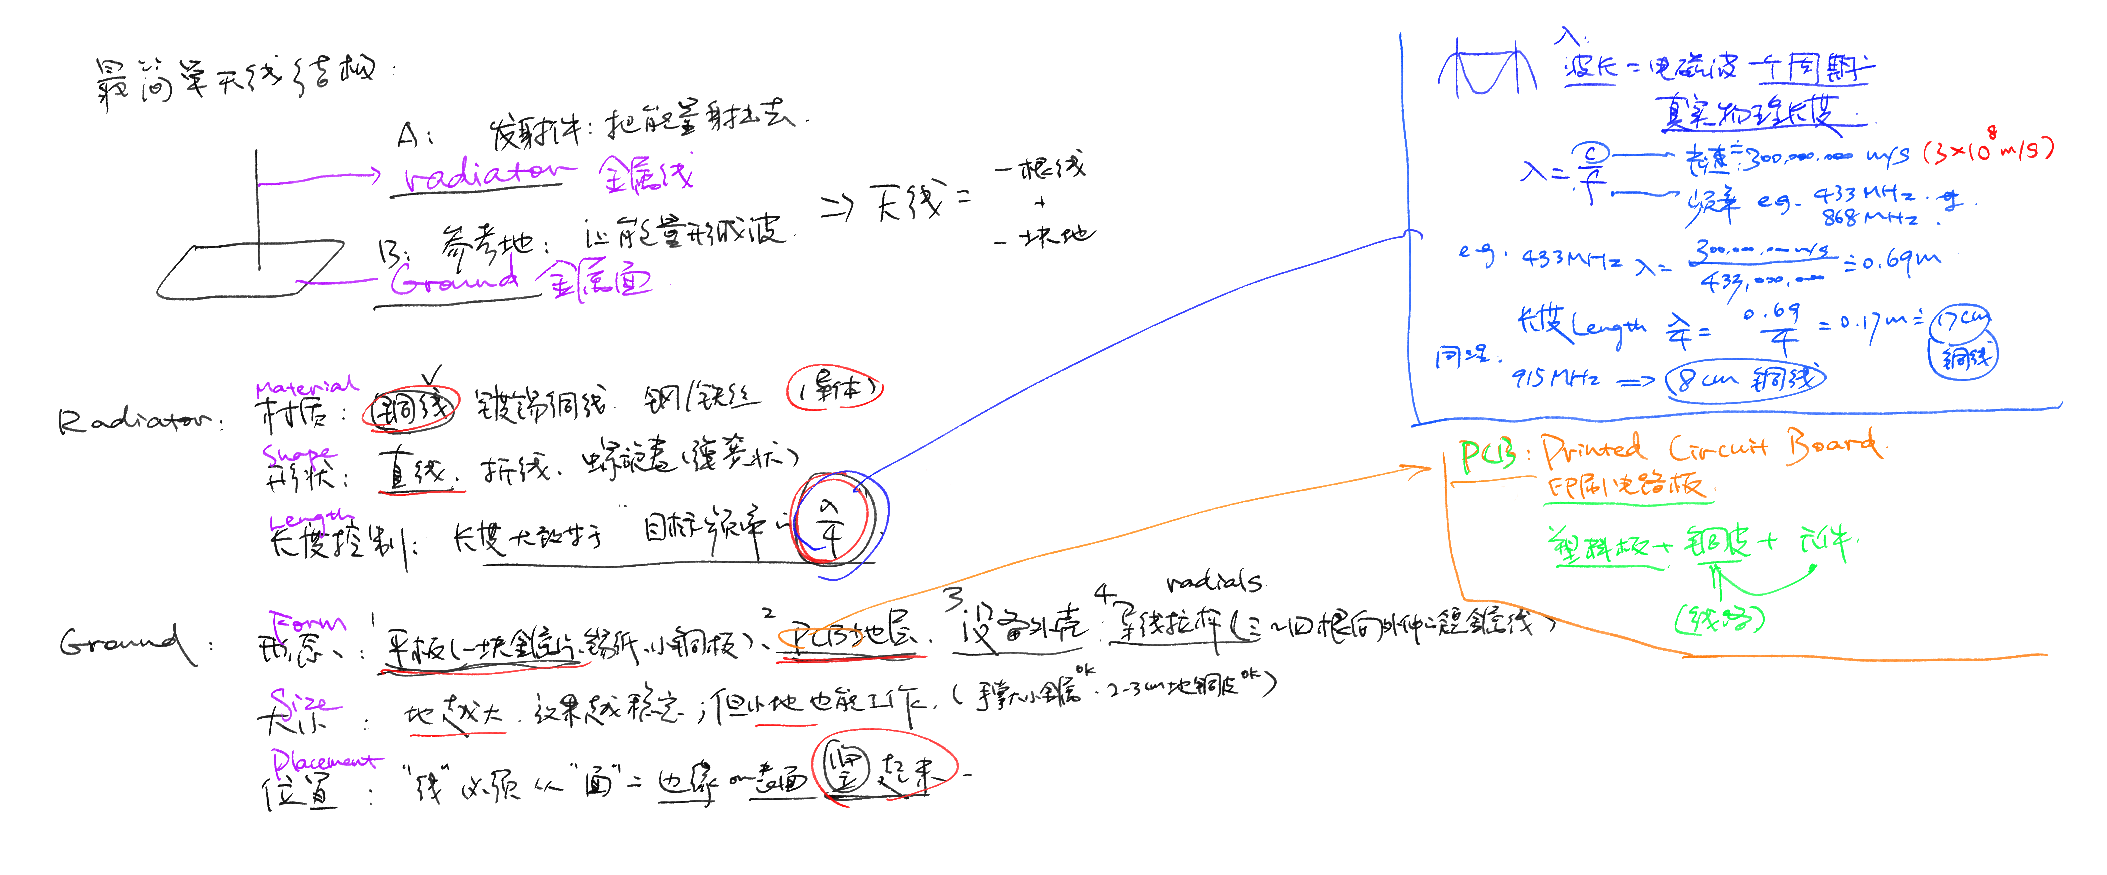 最简单天线结构:
A: 发射件:把能量射出去.
radiator 金属线
B: 参考地: 让能量形成波.
Ground 金属面
⇒ 天线 = 一根线 + 一块地
Material
Radiator: 材质: 铜线 ✓ 镀锡铜线. 钢/铁丝 (导体)
Shape
形状: 直线. 折线. 螺旋(弹簧状)
Length
长度控制: 长度大致等于 目标频率的 λ/4
radials
Form
Ground: 形态: 1 平板(一块金属片、锡纸、小铜板)、 2 PCB地层. 3 设备外壳. 4 导线拉杆(三~四根向外伸的短金属线)
Size
大小: 地越大. 效果越稳定; 但小地也能工作. (手掌大小金属ok. 2-3cm地铜皮ok)
Placement
位置: "线"必须从"面"的边缘 or 表面 竖起来.
λ:
波长 = 电磁波一个周期
真实物理长度.
λ = c/f
光速 ≒ 300,000,000 m/s (3×10⁸ m/s)
频率 e.g. 433MHz.
868MHz.
e.g. 433MHz λ = 300,000,000 m/s / 433,000,000 ≒ 0.69m
长度 Length λ/4 = 0.69/4 = 0.17m ≒ 17cm
铜线
同理.
915MHz ⇒ 8cm 铜线
PCB: Printed Circuit Board.
印刷电路板
塑料板 + 铜皮 + 元件.
(线路)